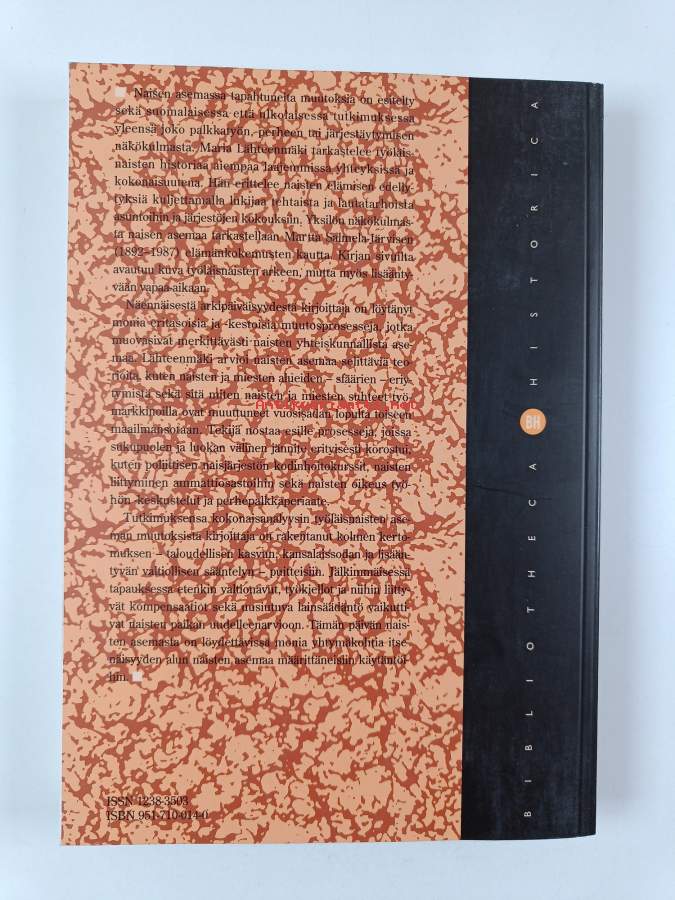 Naisen asemassa tapahtuneita muutoksia on esitelty
sekä suomalaisessa että ulkolaisessa tutkimuksessa
yleensä joko palkkatyön, perheen tai järjestäytymisen
näkökulmasta. Maria Lähteenmäki tarkastelee työläis-
naisten historiaa aiempaa laajemmissa yhteyksissä ja
kokonaisuutena. Hän erittelee naisten elämisen edelly-
tyksiä kuljettamalla lukijaa tehtaista ja lautatarhoista
asuntoihin ja järjestöjen kokouksiin. Yksilön näkökulmas-
ta naisen asemaa tarkastellaan Martta Salmela-Järvisen
(1892–1987) elämänkokemusten kautta. Kirjan sivuilta
avautuu kuva työläisnaisten arkeen, mutta myös lisäänty-
vään vapaa-aikaan.
Näennäisestä arkipäiväisyydestä kirjoittaja on löytänyt
monia eritasoisia ja -kestoisia muutosprosesseja, jotka
muovasivat merkittävästi naisten yhteiskunnallista ase-
maa. Lähteenmäki arvioi naisten asemaa selittäviä teo-
rioita, kuten naisten ja miesten alueiden – sfäärien – eriy-
tymistä sekä sitä miten naisten ja miesten suhteet työ-
markkinoilla ovat muuttuneet vuosisadan lopulta toiseen
maailmansotaan. Tekijä nostaa esille prosesseja, joissa
sukupuolen ja luokan välinen jännite erityisesti korostui,
kuten poliittisen naisjärjestön kodinhoitokurssit, naisten
liittyminen ammattiosastoihin sekä naisten oikeus työ-
hön -keskustelut ja perhepalkkaperiaate.
Tutkimuksensa kokonaisanalyysin työläisnaisten ase-
man muutoksista kirjoittaja on rakentanut kolmen kerto-
muksen – taloudellisen kasvun, kansalaissodan ja lisään-
tyvän valtiollisen sääntelyn – puitteisiin. Jälkimmäisessä
tapauksessa etenkin valtionavut, työkiellot ja niihin liitty-
vät kompensaatiot sekä uusiutuva lainsäädäntö vaikutti-
vat naisten palkan uudelleenarvioon. Tämän päivän nais-
ten asemasta on löydettävissä monia yhtymäkohtia itse-
näisyyden alun naisten asemaa määrittäneisiin käytäntöi-
hin.
ISSN 1238-3503
ISBN 951-710-014-0
BIBLIOTHECA BH HISTORICA